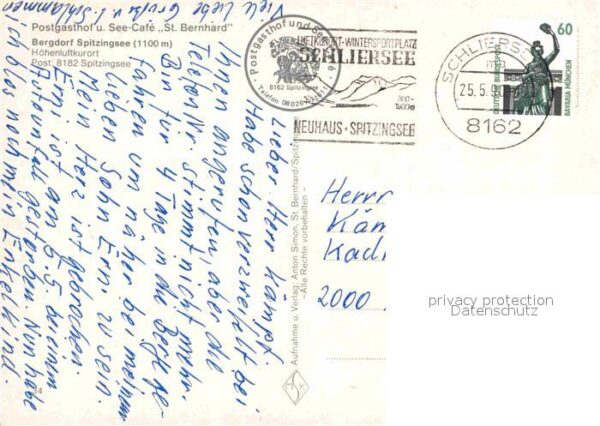 Postgasthof u. See-Café „St. Bernhard"
Bergdorf Spitzingsee (1100 m)
Höhenluftkurort
Post: 8182 Spitzingsee
Postgasthof und
8162 Spitzingsee
Telefon 08026
LUFTKURORT·WINTERSPORTPLATZ
SCHLIERSEE
NEUHAUS·SPITZINGSEE
SCHLIERSEE
25.5.9
8162
60
DEUTSCHE BUNDESPOST
BAVARIA MÜNCHEN
Lieber Herr Kampf.
Habe schon verzweifelt bei
Ihnen angerufen, aber die
Telefon Nr. stimmt nicht mehr.
Bin für 4 Tage in die Berge ge-
fahren um näher bei meinem
lieben Sohn Erni zu sein.
Mein Herz ist gebrochen.
Erni ist am 6.5. beim
Autounfall gestorben. Nun habe
ich bloß noch mein Enkelkind.
Viele liebe Grüße
Aufnahme u. Verlag: Anton Simon, St. Bernhard/Spitzing
–Alle Rechte vorbehalten–
Herrn
Käm
Kadi
2000
privacy protection
Datenschutz